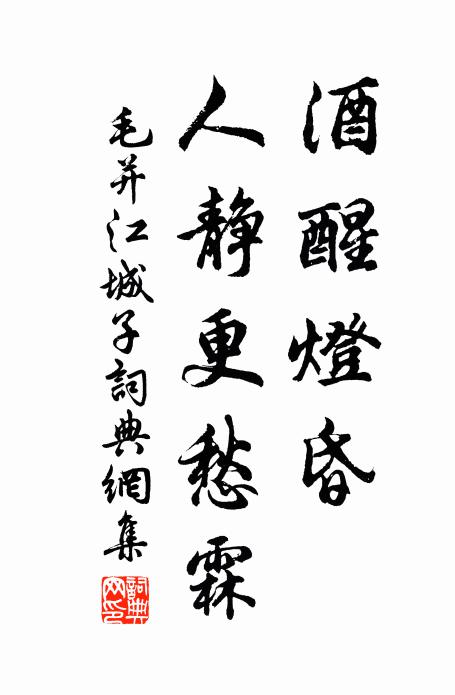 酒醒燈昏
人靜更愁霖
毛幵江城子詞典網集
詞典網印